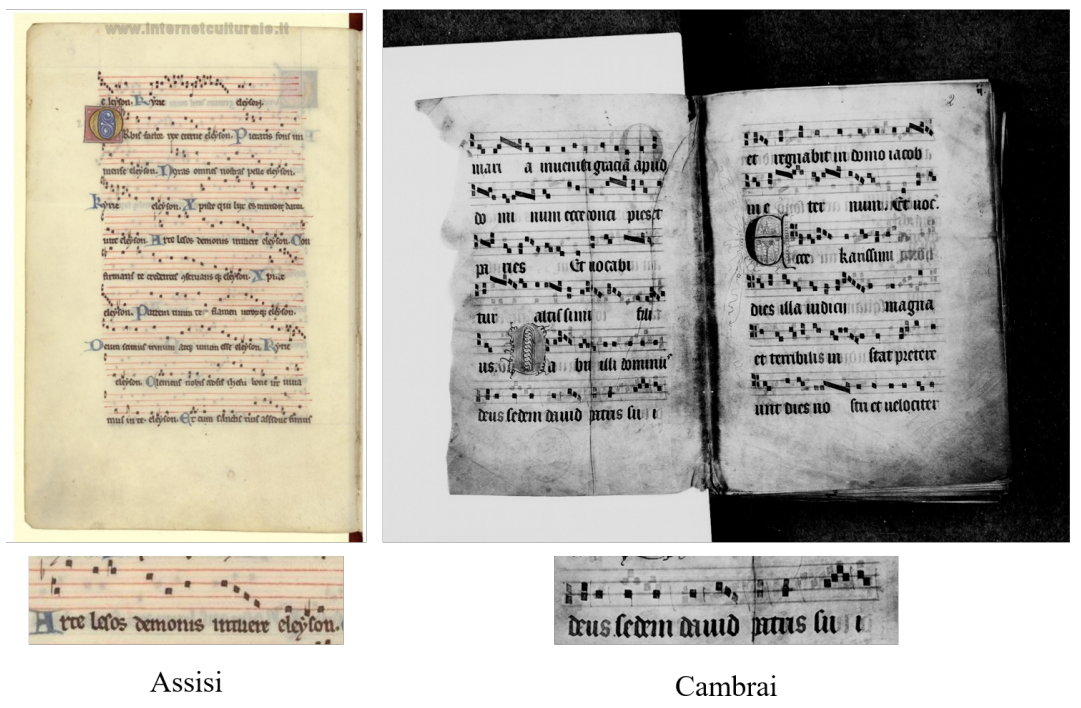 www.internetculturale.it
eleyson. Kyrie eleyson.
Orbis factor rex eterne eleyson. Pietatis fons im
mense eleyson. Noxas omnes nostras pelle eleyson.
Kyrie eleyson. Xpiste qui lux es mundi dator
vite eleyson. Arte lesos demonis intuere eleyson. Con
firmans te credentes eleyson. Xpiste
eleyson. Patrem tuum te flamen eleyson.
unum esse eleyson. Kyrie
eleyson. Clemens nobis
eleyson.
2
mari a invenisti graciā apud
do mi num ecce concipies et
pa ries Et vocabi
tur altissimi fili
us. Da bit illi dominus
deus sedem david patris su i
et regnabit in domo iacob
in e ter num. Et voc.
Ecce karissimi
dies illa iudicii magna
et terribilis instat preter
eunt dies no stri et velociter
Arte lesos demonis intuere eleyson.
deus sedem david patris su i
Assisi
Cambrai